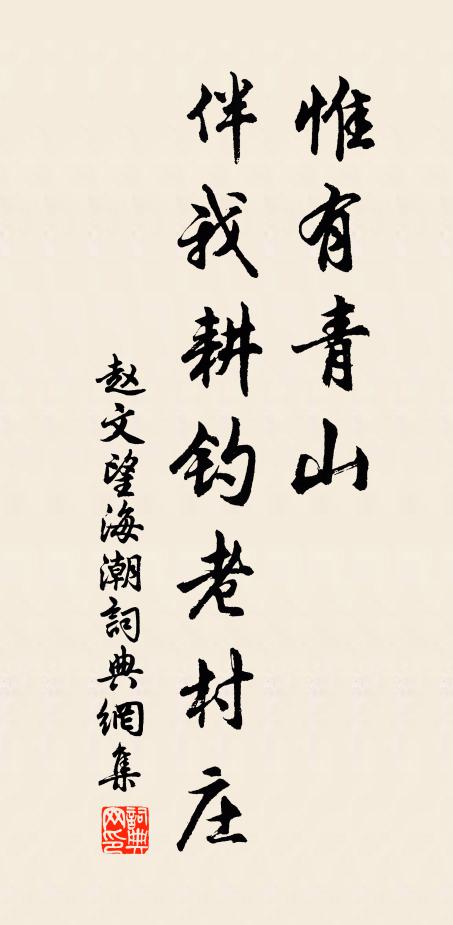 惟有青山
伴我耕钓老村庄
赵文望海潮詞典網集
詞典
网印